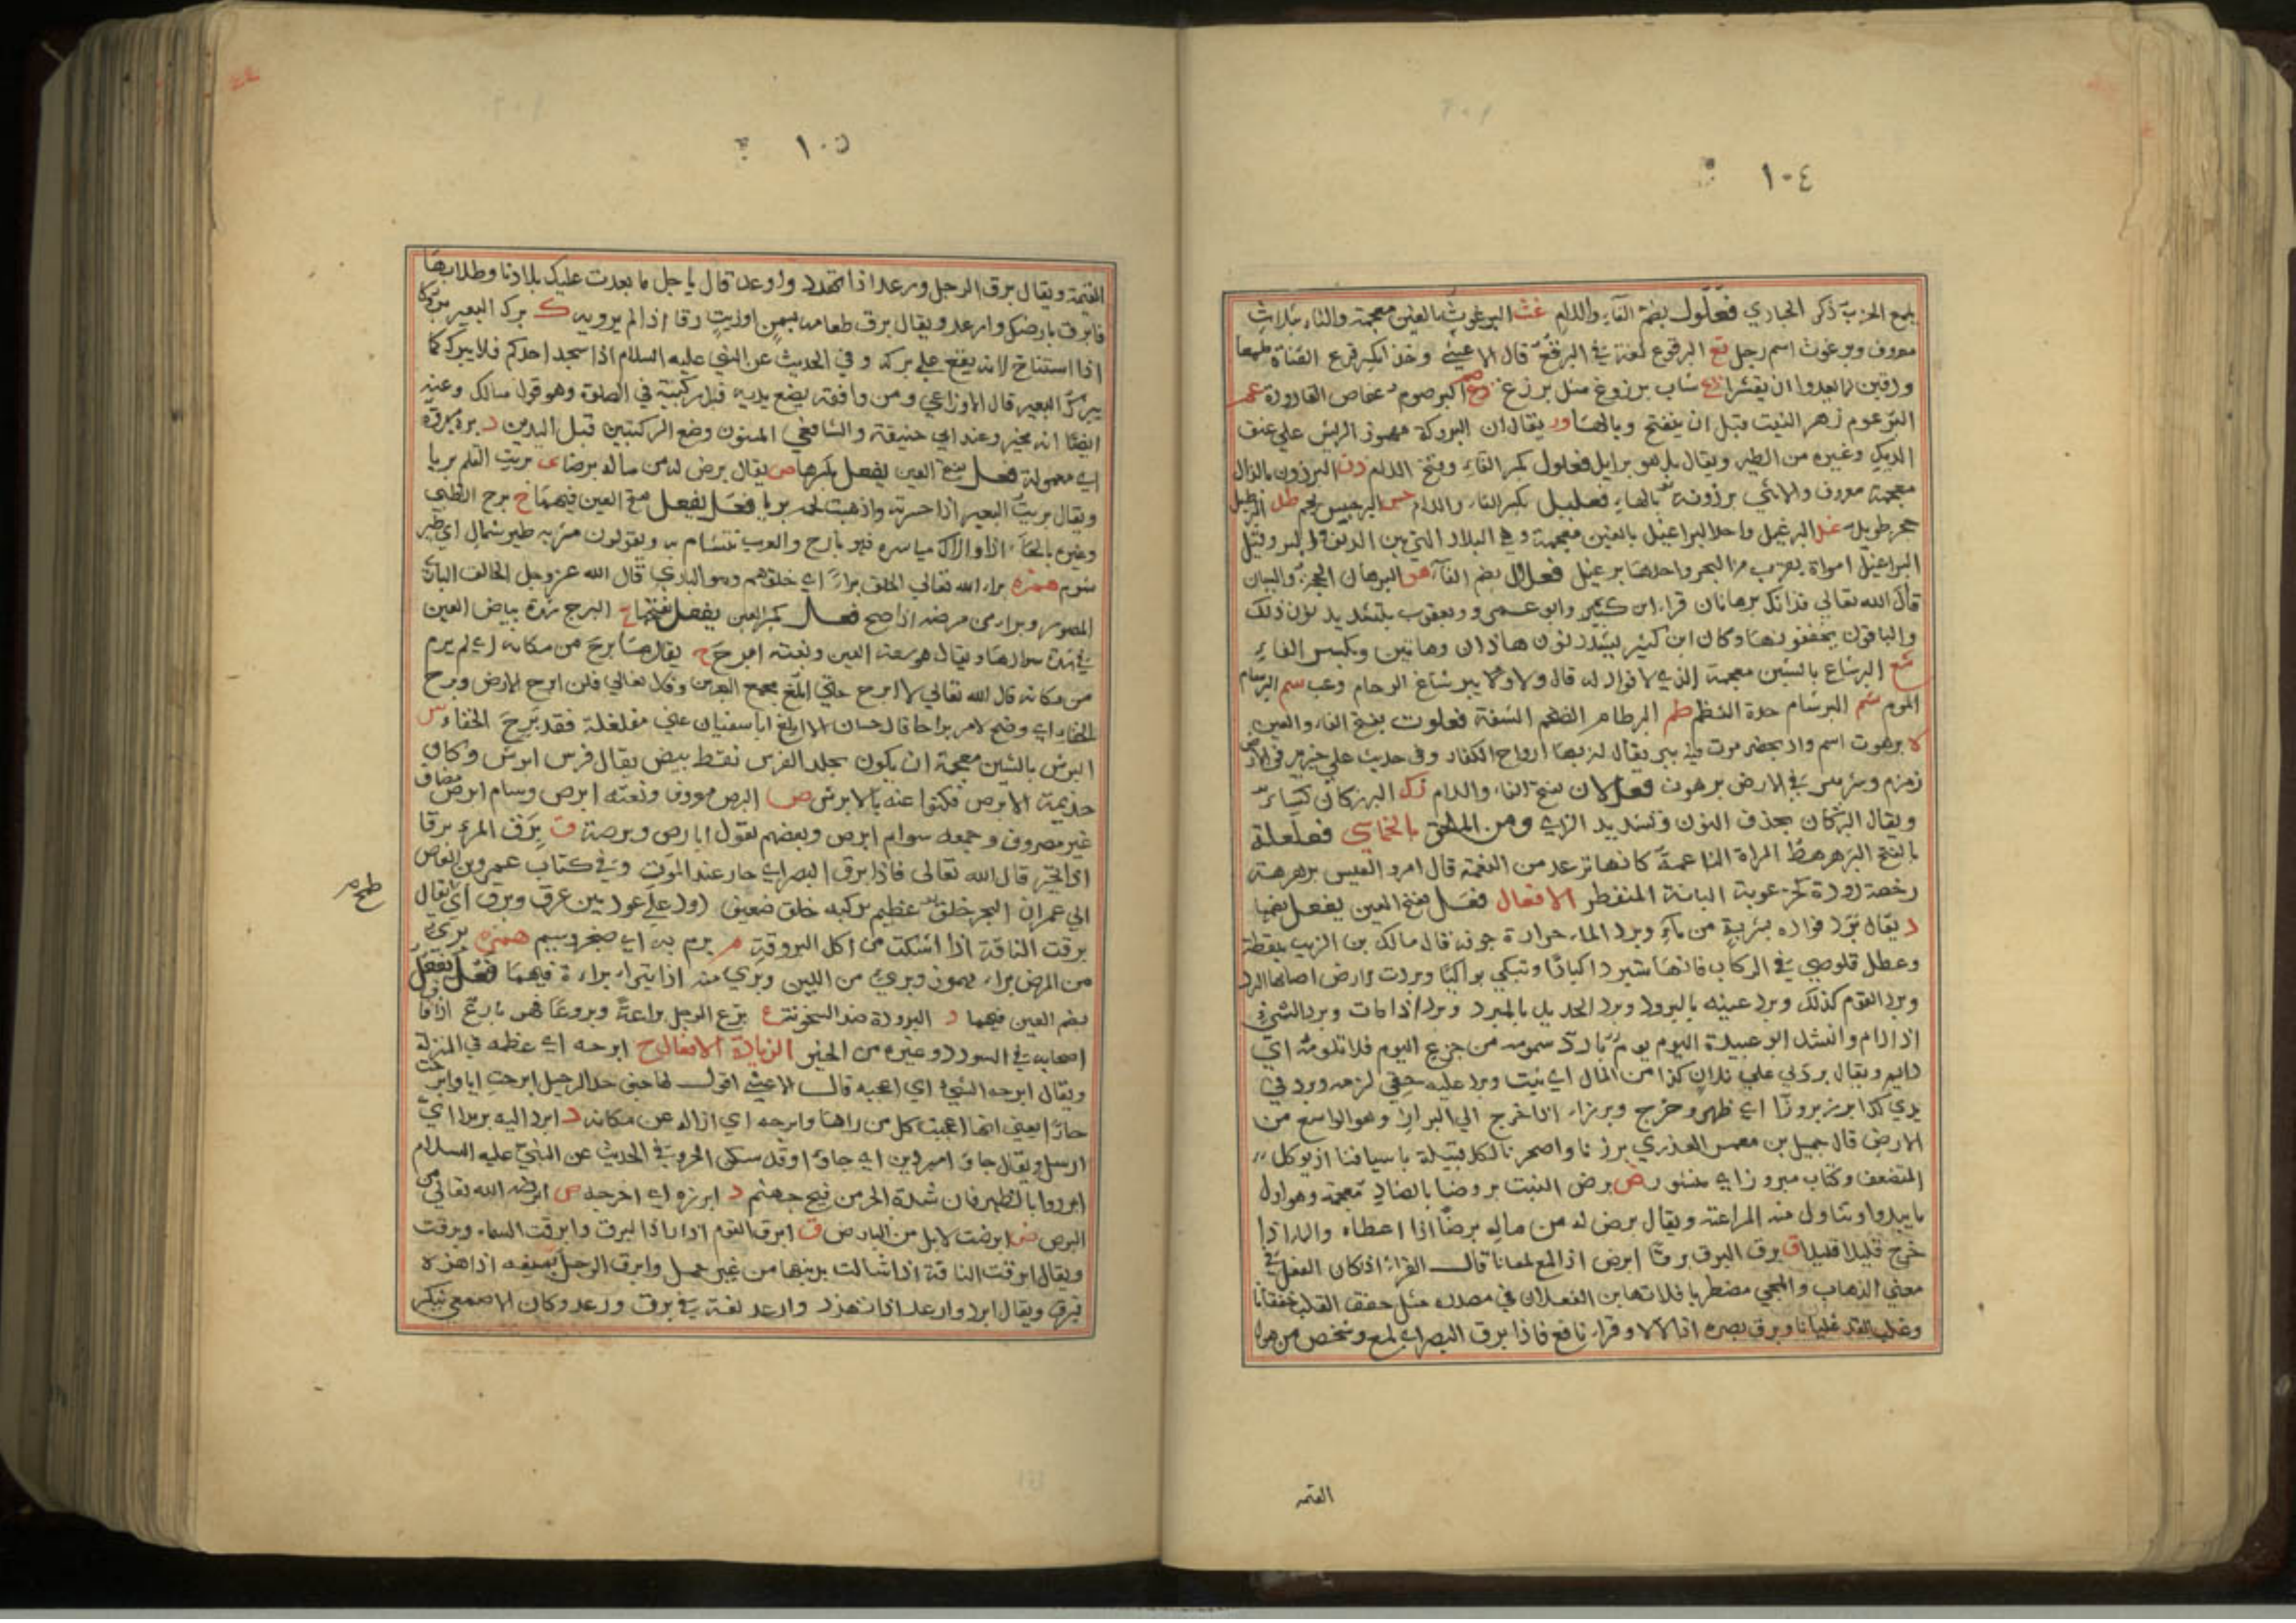 ١٠٤
يلمع الخرب ذكر الحباري فعلول بضم الفاء واللام غث البرغوث بالغين معجمة والثاء بثلاث
معروف وبرغوث اسم رجل قع البرقوع لغة في البرقع قال الاعشى
شاب برزوغ مثل برزغ
البرعوم زهر النبت قبل ان يتفتح وبالهاء ور يقال ان البروكة مهموز الريش على عنق
الديك وغيره من الطير ويقال بل هو برايل فعلول بكسر الفاء وفتح اللام ذن البرذون بالذال
معجمة معروف والانثى برذونة بالهاء فعليل بكسر الفاء واللام جس البرجيس نجم طل البرطيل
حجر طويل غل البرغيل واحد البراغيل بالغين معجمة وهي البلاد التي بين الريف والبر وقيل
البراغيل امواه بقرب من البحر واحدها برغيل فعلال بضم الفاء هن البرهان الحجة والبيان
قال الله تعالى فذانك برهانان قراء ابن كثير وابو عمرو ويعقوب بتشديد نون ذلك
والباقون يخففونها وكان ابن كثير يشدد نون هاذان وهاتين وبكسر الفاء
شع البرشاع بالشين معجمة الذي لا فواد له قال ولا ببرشاع الوخام وغب سم البرسام
الموم شم البرشام حدة النظر طم البرطام الضخم الشفة فعلوت بفتح الفاء والعين
ه برهوت اسم واد بحضرموت فيه بير يقال ان بها ارواح الكفار وفي حديث علي خير بير في الارض
زمزم وشر بير في الارض برهوت فعللان بفتح الفاء واللام زك البرزكان كساء
ويقال البركان بحذف النون وتشديد الراء ومن الملحق بالخماسي فعلعلة
بالفتح البرهرهة المراة الناعمة كانها ترعد من النعمة قال امرو القيس برهرهة
رخصة رودة كخرعوبة البانة المنفطر الافعال فعل بفتح العين يفعل بضمها
د يقال برد فواده بشربة من ماء وبرد الماء حرارة جوفه قال مالك بن الريب
وعطل قلوصي في الركاب فانها ستبرد اكبادا وتبكي بواكيا وبردت الارض اصابها البرد
وبرد القوم كذلك وبرد عينه بالبرود وبرد الحديد بالمبرد وبرد اذا مات وبرد الشي
اذا دام وانشد ابو عبيدة اليوم يوم بارد سمومه من جزع اليوم فلا تلومه اي
دايم ويقال برد لي على فلان كذا من المال اي ثبت وبرد عليه حقي لزمه وبرد في
يدي كذا برز بروزا اي ظهر وخرج وبرز اذا خرج الى البراز وهو الواسع من
الارض قال جميل بن معمر العذري برزنا واصحرنا لكل قبيلة باسيافنا اذ يوكل
المتضعف وكتاب مبروز اي منشور ض برض النبت بروضا بالضاد معجمة وهو اول
ما يبدوا وتتناول منه المراعية ويقال برض له من ماله برضا اذا اعطاه والماء اذا
خرج قليلا قليلا ق برق البرق برقا ابرض اذا لمع لمعانا قال الفراء اذا كان الفعل في
معنى الذهاب والمجي مضطربا فلا تهابن الفعلان في مصدره مثل خفق القلب خفقانا
وغلت القدر غليانا وبرق بصره اذا تلالا وقراء نافع فاذا برق البصر اي لمع وشخص من هول
القتمة
١٠٥
القتمة ويقال برق الرجل ورعد اذا تهدد واوعد قال يا جل ما بعدت عليك بلادنا وطلابها
فابرق بارضك وارعد ويقال برق طعامه بسمن او زيت برقا اذا لم يروه ك برك البعير بروكا
اذا استناخ لانه يقع على بركه وفي الحديث عن النبي عليه السلام اذا سجد احدكم فلا يبرك كما
يبرك البعير قال الاوزاعي ومن وافقه يضع يديه قبل ركبتيه في الصلوة وهو قول مالك وعنه
ايضا انه مخير وعند ابي حنيفة والشافعي المسنون وضع الركبتين قبل اليدين
اي معمولة فعل بفتح العين يفعل بكسرها ض يقال برض له من ماله برضا ى بريت القلم بريا
ويقال بريت البعير اذا حسرته واذهبت لحمه بريا فعل يفعل بفتح العين فيهما ح برح الظبي
وغيره بالحاء اذا ولاك مياسره فهو بارح والعرب تتشاءم به ويقولون مر به طير شمال اي طير
شوم همزة براء الله تعالى الخلق براءً اي خلقهم وهو الباري قال الله عز وجل الخالق الباري
المصور وبراء من مرضه اذا صح فعل بكسر العين يفعل بفتحها ج البرج شدة بياض العين
في شدة سوادها ويقال هو سعة العين ونعته ابرج ح يقال ما برح من مكانه اي لم يرم
من مكانه قال الله تعالى لا ابرح حتى ابلغ مجمع البحرين وقال تعالى فلن ابرح الارض وبرح
الخفاء اي وضح الامر براحا قال حسان الا ابلغ ابا سفيان عني مغلغلة فقد برح الخفاء ش
البرش بالشين معجمة ان يكون بجلد الفرس نقط بيض يقال فرس ابرش وكان
جذيمة الابرص فكنوا عنه بالابرش ص البرص معروف ونعته ابرص وسام ابرص مضاف
غير مصروف وجمعه سوام ابرص وبعضهم يقول ابارص وبرصة ق برق المرء برقا
اذا تحير قال الله تعالى فاذا برق البصر اي حار عند الموت وفي كتاب عمرو بن العاص
الى عمر ان البحر خلق عظيم يركبه خلق ضعيف دود على عود بين غرق وبرق ويقال
برقت الناقة اذا اشتكت من اكل البروقة م برم به اي ضجر وسيم همزة برئ
من المرض براء مهموز وبرئ من الدين وبرئ منه اذا تبراء براءة فيهما فعل يفعل
بضم العين فيهما د البرودة ضد السخونة ع برع الرجل براعة وبروعا فهو بارع اذا فاق
اصحابه في السودد وغيره من الخير الزيادة الافعال ح ابرحه اي عظمه في المنزلة
ويقال ابرحه الشي اي اعجبه قال الاعشى اقول لها حين جد الرحيل ابرحت ربا وابرحت
جارا يعني انها اعجبت كل من راها وابرحه اي ازاله عن مكانه د ابرد اليه بريدا اي
ارسل ويقال جاؤا مبردين اي جاؤا وقد سكن الحر وفي الحديث عن النبي عليه السلام
ابردوا بالظهر فان شدة الحر من فيح جهنم ز ابرزه اي اخرجه ص ابرصه الله تعالى من
البرص ض ابرضت الابل من البارض ق ابرق القوم اذا راوا البرق وابرقت السماء وبرقت
ويقال ابرقت الناقة اذا شالت بذنبها من غير حمل وابرق الرجل بسيفه اذا هزه
فبرق ويقال ابرق وارعد اذا تهدد وارعد لغة في برق ورعد وكان الاصمعي ينكر